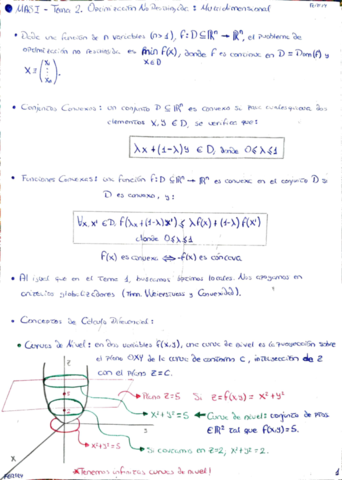 MASI - Tema 2. Optimización No Restringida: Multidimensional
• Dada una función de n variables (n>1), f: D⊆ℝⁿ → ℝⁿ, el problema de
optimización no restringida es min f(x), donde f es convexa en D = Dom(f) y
x∈D
X =
• Conjuntos Convexos: un conjunto D⊆ℝⁿ es convexo si para cualesquiera dos
elementos x, y ∈ D, se verifica que:
λx + (1-λ)y ∈ D, donde 0≤λ≤1
• Funciones Convexas: una función f: D⊆ℝⁿ → ℝⁿ es convexa en el conjunto D si
D es convexo, y:
∀x, x' ∈ D, f(λx + (1-λ)x') ≤ λf(x) + (1-λ) f(x')
donde 0≤λ≤1
f(x) es convexa ⇔ -f(x) es cóncava.
• Al igual que en el Tema 1, buscamos óptimos locales. Nos apoyamos en
criterios globalizadores (Thm. Weierstrass y Convexidad).
• Conceptos de Cálculo Diferencial:
• Curvas de Nivel: en dos variables f(x,y), una curva de nivel es la proyección sobre
el plano OXY de la curva de contorno C, intersección de Z
con el plano Z=C.
Z
Plano Z=5 Si Z=f(x,y) = x²+y²
x²+y²=5 Curva de nivel: conjunto de ptos
∈ℝ² tal que f(x,y)=5.
x²+y²=5
Si cortamos en Z=2, x²+y²=2.
X
* Tenemos infinitas curvas de nivel!